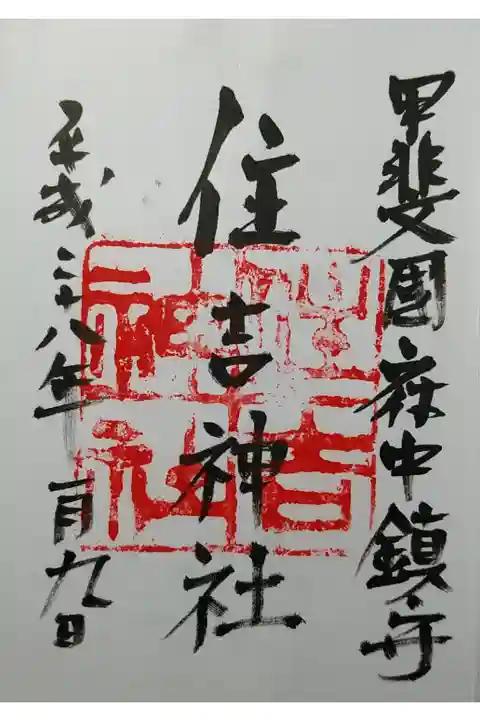 甲斐國府中鎮守
住吉神社
平成二十八年 月九日
住吉神社